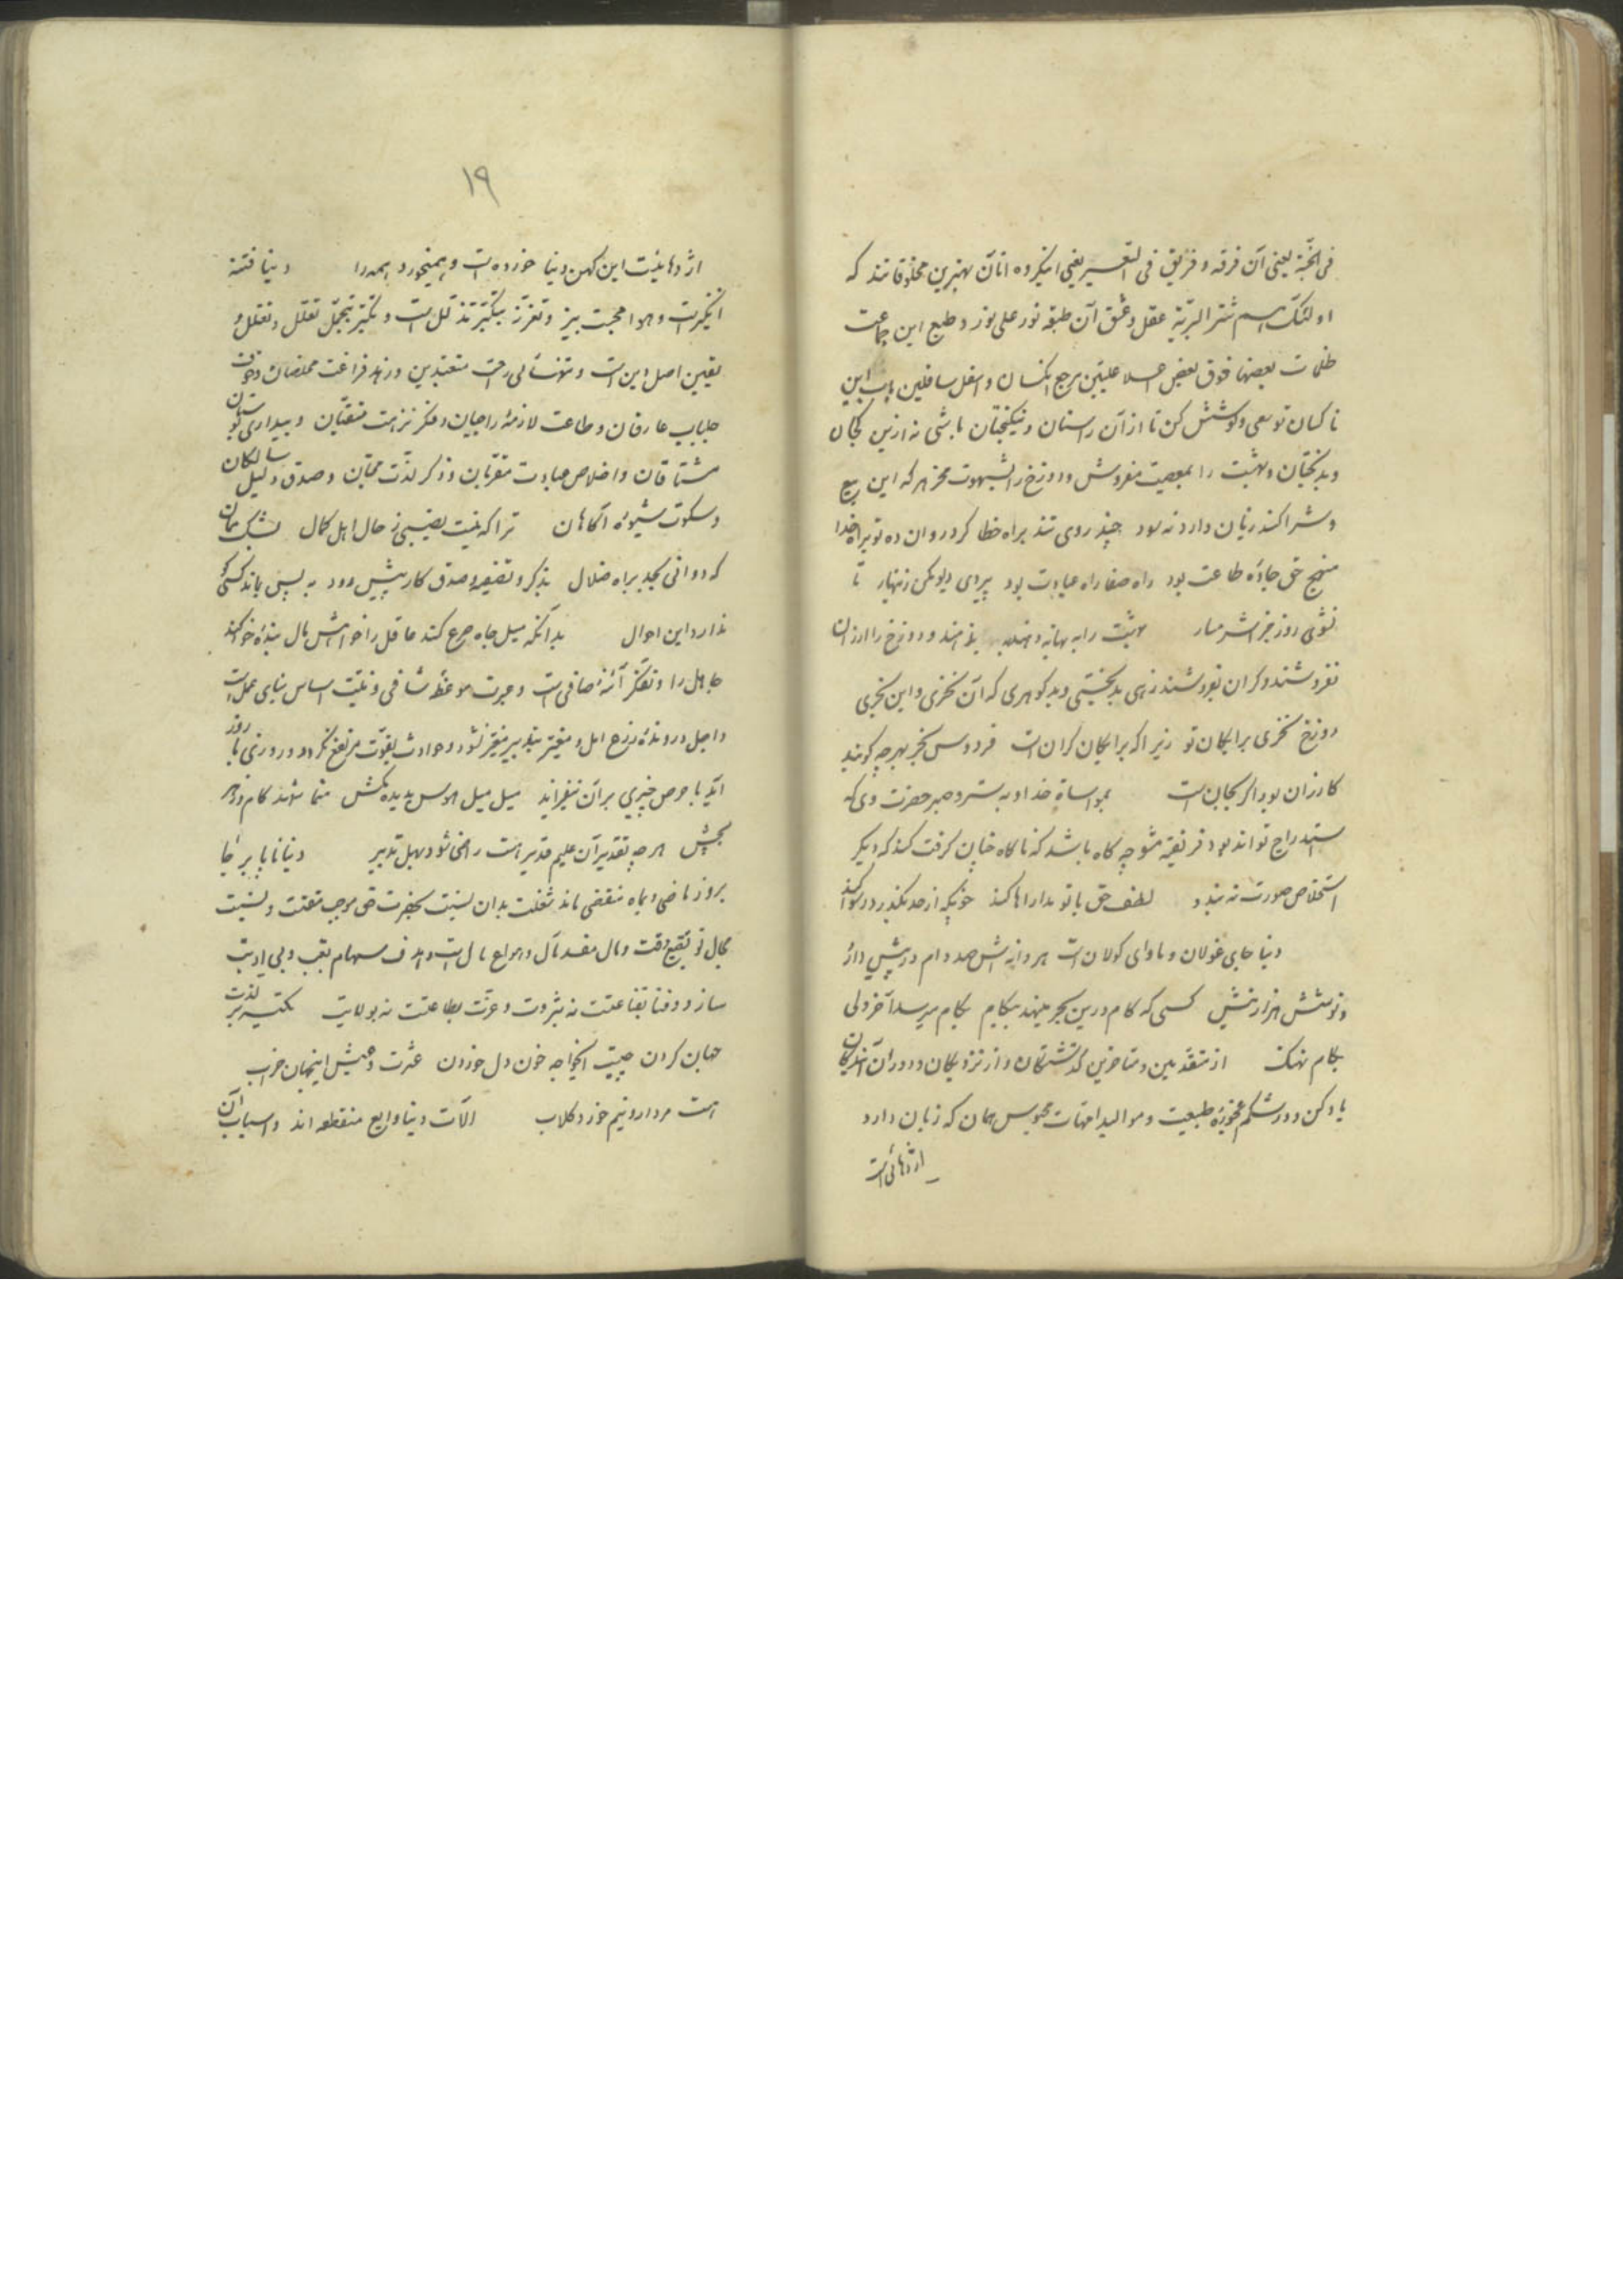 فی الجنّة یعنی آن فرقه و فریق فی السّعیر یعنی اینکروه اتان بهترین مخلوقاتند که
اولئک هم شرّ البریّة عقل و عشق آن طبقه نور علی نور و طبع این جماعت
ظلمات بعضها فوق بعض علیّین مرجع انکسان و اسفل سافلین این
ناکسان تو سعی و کوشش کن تا از آن راستان و نیکبختان باشی نه ازین کجان
و بدبختان و بهشت را بمعصیت مفروش و دوزخ را بشهوت مخر هر که این بیع
و شرا کند زیان دارد نه سود چند روی تند براه خطا کرد روان ده تو براه خدا
منهج حق جادهٔ طاعت بود راه صفا راه عبادت بود پیروی دیو مکن زنهار تا
نشوی روز جزا شرمسار بهشت را به بهانه و دوزخ را ارزان
نفروشند و کران بفروشند زهی بدبختی و بدکوهری که آن نخری و این بخری
دوزخ نخری برایکان تو زیرا که برایکان کرانست فردوس بخر بهرچه کویند
کارزان بود اگر بجانست بمواساة خدا و به ستر و صبر حضرت وی که
استدراج تواند بود فریفته مشو چه کاه باشد که ناکاه چنان کرفت کند که دیکر
استخلاص صورت نه بندد لطف حق با تو مداراها کند چونکه از حد بگذرد رسوا کند
دنیا جای غولان و ماوای کولانست هر دانه اش صد دام در پیش دارد
و نوشش هزار نیش کسی که کام درین بحر مینهد بیکام بکام میرسد آخر ولی
بکام نهنک از متقدمین و متاخرین کذشتکان و از نزدیکان و دوران
یاد کن و در شکم طبیعت و موالید امهات محبوس همان که زبان دارد
اژدهائی است
۱۹
اژدهائیست این کهن دنیا خورده است و همیخورد همه را دنیا فتنه
انکیزست و هوا محبت بیز و تعزّز بتکبّر تذلّل است و تکبّر بتجمّل تعلّل و تعقل و
یقین اصل دین است و تنهائی راحت متعبدین و زهد فراغت مخلصان و خوف
جلباب عارفان و طاعت لازمهٔ راجیان و فکر نزهت متقیان و بیداری
مشتاقان و اخلاص عبادت مقرّبان و ذکر لذّت محبّان و صدق دلیل سالکان
و سکوت شیوهٔ آکاهان ترا که نیست نصیبی ز حال اهل کمال بشک بمان
که دوانی بجد براه ضلال بذکر و تضرّع و صدق کار پیش رود به پس بماند کسی کو
ندارد این احوال بدانکه میل جاه صرع کند عاقل را خواهش مال بنده خواهد
جاهل را و تفکّر آئنهٔ صافی است و عبرت موعظهٔ شافی و نیّت اساس بنای عمل است
و اجل دروندهٔ زرع امل و مقدّر بتدبیر متغیّر نشود و حوادث بقوّت مرتفع نکردد و روزی با روز
آید با حرص چیزی بر آن نیفزاید میل میل هوس بدیده مکش
بچش هرچه تقدیر آن علیم قدیر است راضی شو و بهل تدبیر دنیا ناپا بر جا
بروز ماضی و بماه منقضی ماند شغلت بدان نسبت بحضرت حق موجب مقتت و نسبت
بمال تو وقت و مال مفسد مآل و هدف سهام تعب و بی ادبیت
سازد و فنا بقناعتت نه بثروت و عزّت بطاعتت نه بولایت لذت
جهان کردن چیست ایخواجه خون دل خوردن عشرت و عیش اینجهان خراب
هست مردار و نیم خورد کلاب آلات دنیا منقطعه اند و اسباب آن